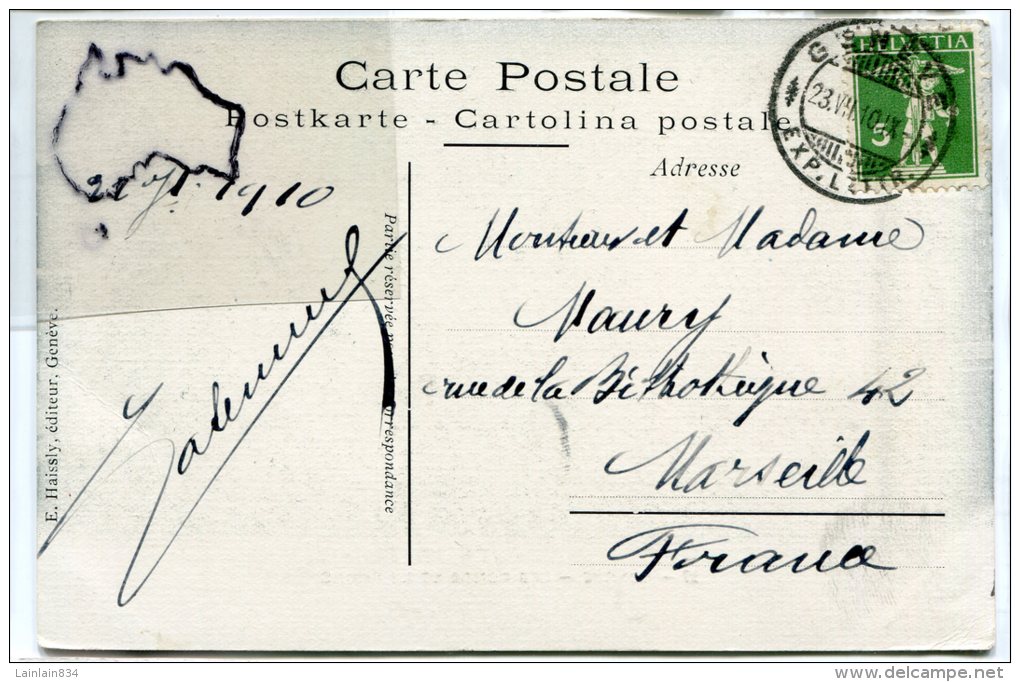 Carte Postale
Postkarte - Cartolina postale
Adresse
HELVETIA
5
GENÈVE
23.VII.10.IX
EXP. LETTR.
1910
Partie réservée correspondance
E. Haissly, éditeur, Genève.
Monsieur et Madame
Maury
rue de la Bibliothèque 42
Marseille
France
Lainlain834
www.delcampe.net